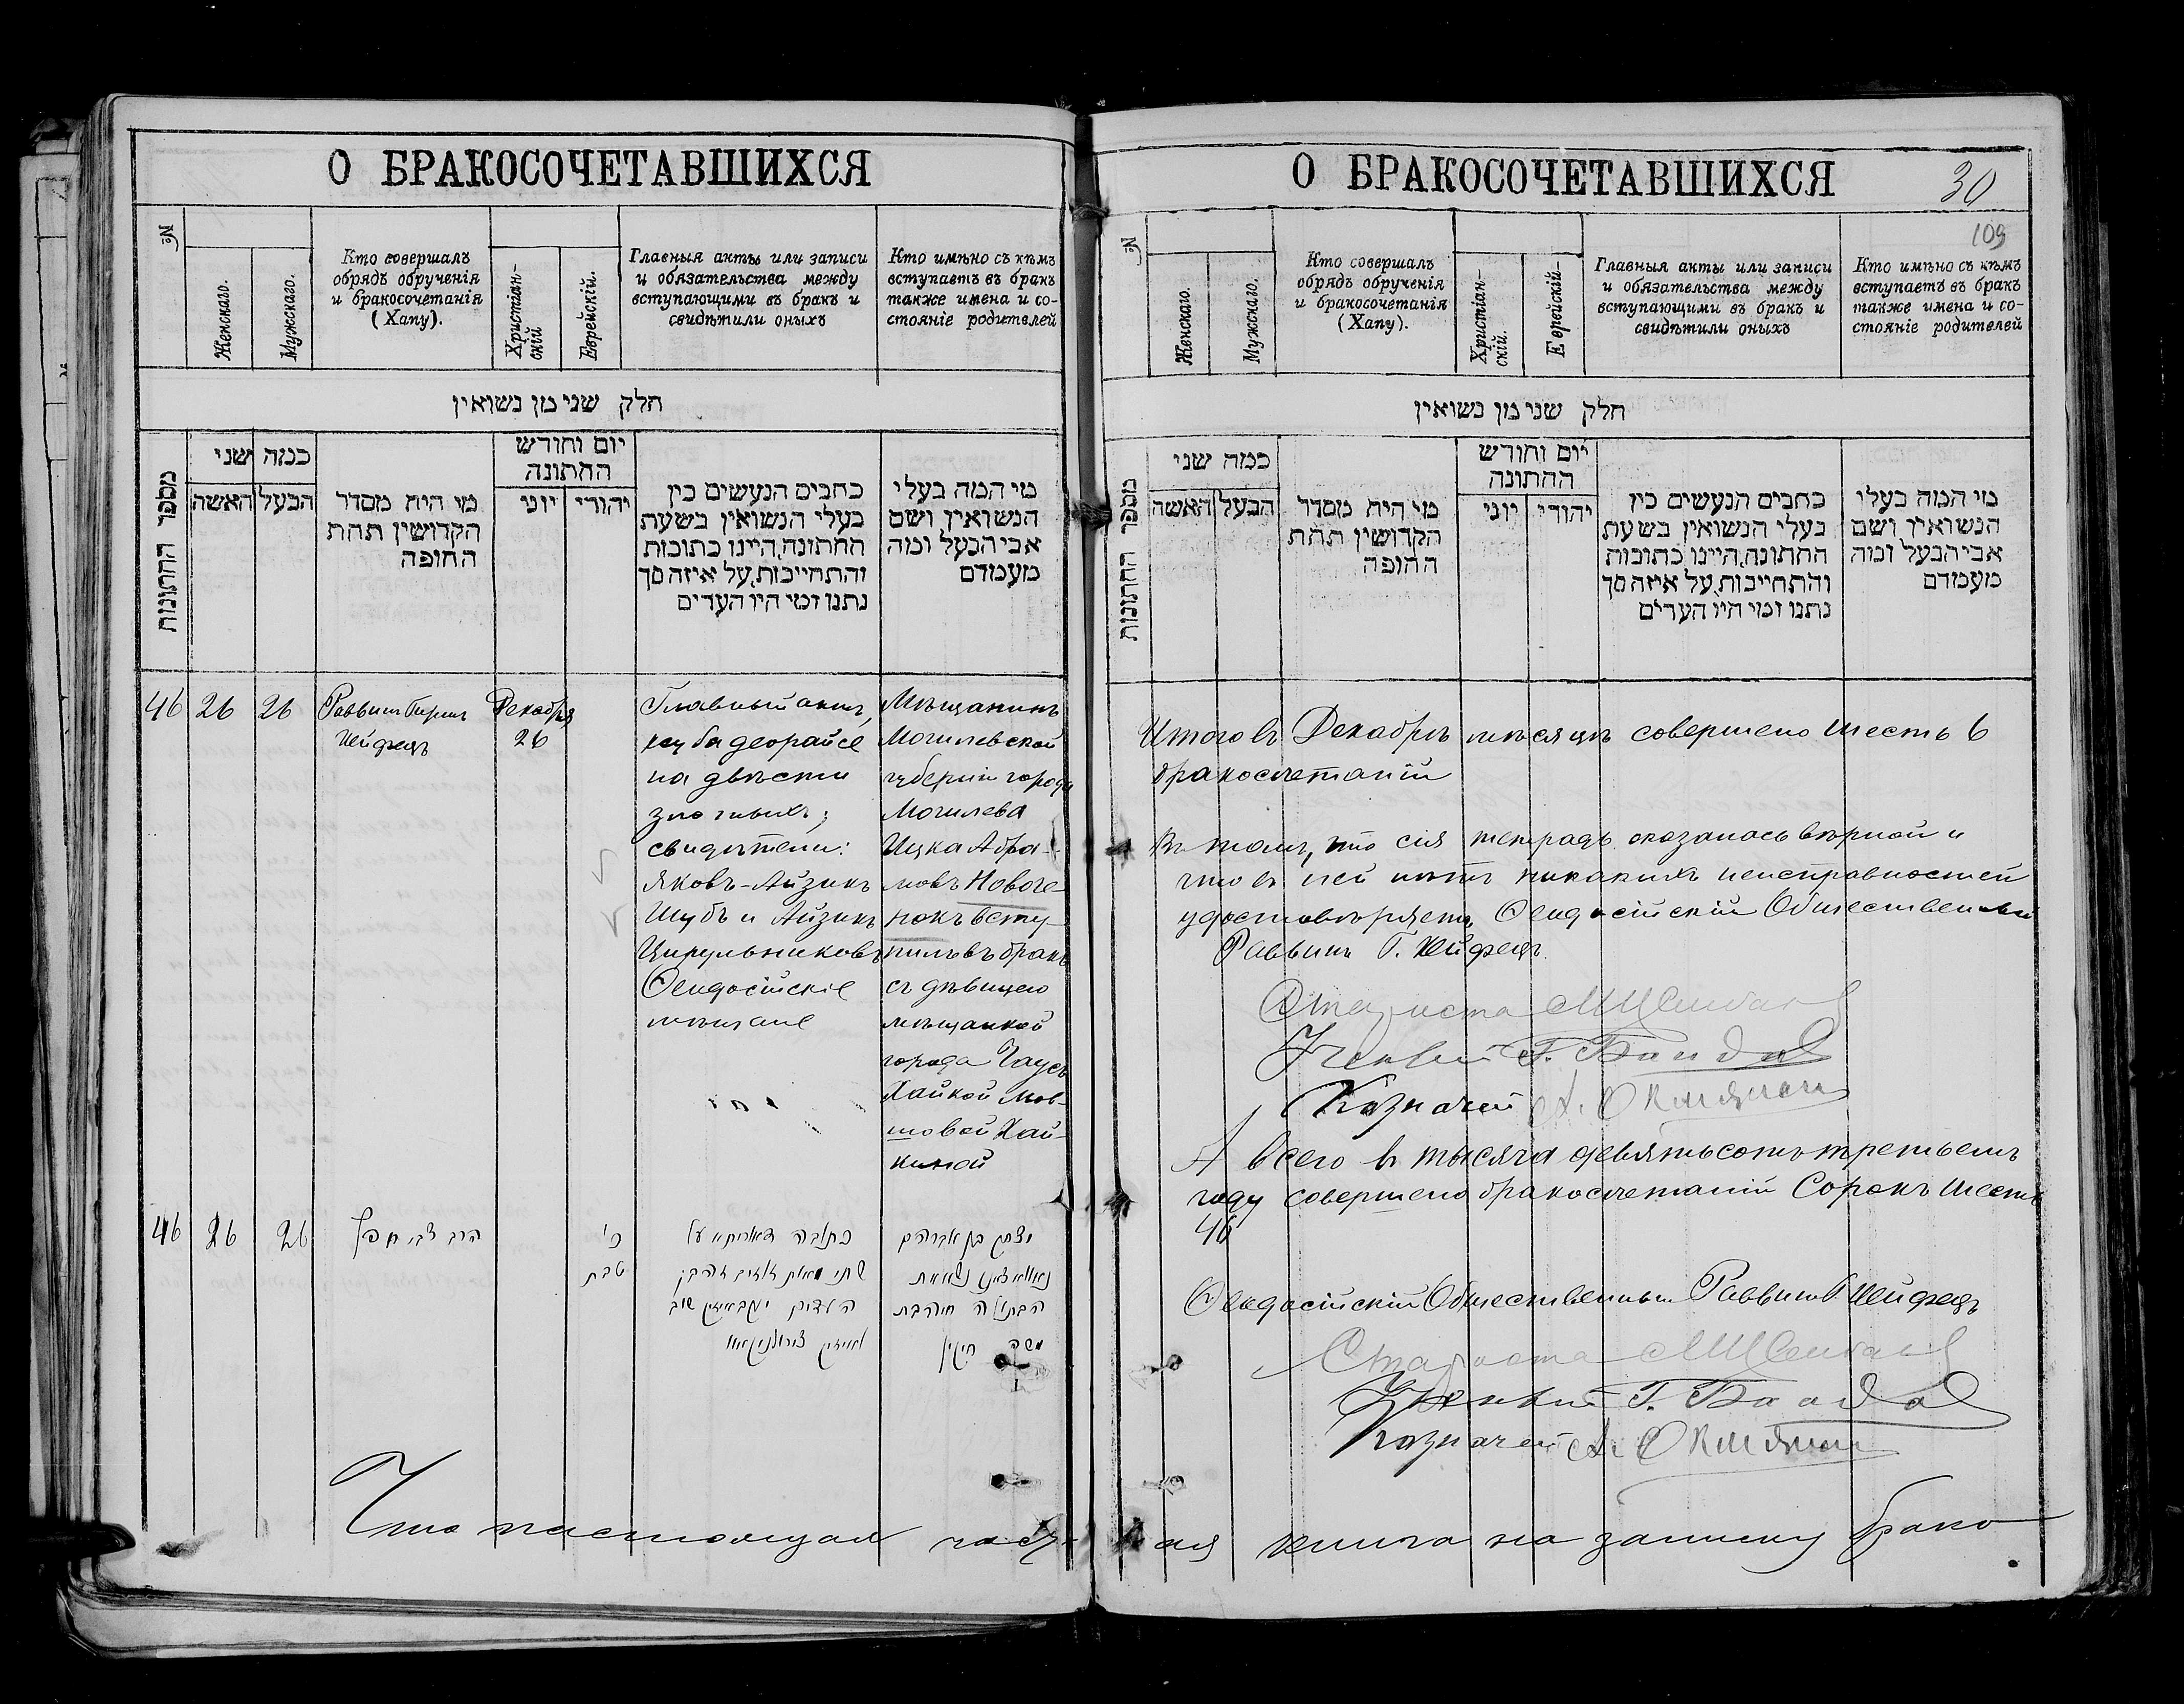 О БРАКОСОЧЕТАВШИХСЯ
№
Женскаго.
Мужскаго.
Кто совершалъ
обрядъ обрученія
и бракосочетанія
(Хапу).
Христіан-
скій
Еврейскій.
Главныя акты или записи
и обязательства между
вступающими въ бракъ и
свидѣтили оныхъ
Кто имѣно съ кѣмъ
вступаетъ въ бракъ
также имена и со-
стояніе родителей
חלק שני מן נשואין
מספר החתונות
כמה שני
האשה
הבעל
מי היה מסדר
הקדושין תחת
החופה
יום וחודש
החתונה
יוני
יהודי
כתבים הנעשים בין
בעלי הנשואין בשעת
החתונה, היינו כתובות
והתחייבות, על איזה סך
נתנו ומי היו העדים
מי המה בעלי
הנשואין ושם
אבי הבעל ומה
מעמדם
46
26
26
Раввинъ Гиршъ
Хейфецъ
Декабря
26
Главный актъ,
кетуба деорайсе
на двѣсти
злотыхъ;
свидѣтели:
Яковъ-Айзикъ
Шубъ и Айзикъ
Цирульниковъ
Ѳеодосійскіе
мѣщане
Мѣщанинъ
Могилевской
губерніи города
Могилева
Ицка Абра-
мовъ Новоче-
нокъ всту-
пилъ въ бракъ
съ дѣвицею
мѣщанкой
города Чаусъ
Хайкой Мов-
шовой Хай-
киной
46
26
26
הרב צבי חפץ
כ'
טבת
כתובה דאורייתא על
שתי מאות זהובים
העדים יעקב אייזיק שוב
ואייזיק צירולניקאוו
יצחק בן אברהם
הבתולה חי' בת
משה חייקין
Что настоящая
О БРАКОСОЧЕТАВШИХСЯ
30
109
№
Женскаго.
Мужскаго.
Кто совершалъ
обрядъ обрученія
и бракосочетанія
(Хапу).
Христіан-
скій.
Еврейскій-
Главныя акты или записи
и обязательства между
вступающими въ бракъ и
свидѣтили оныхъ
Кто имѣно съ кѣмъ
вступаетъ въ бракъ
также имена и со-
стояніе родителей
חלק שני מן נשואין
מספר החתונות
כמה שני
האשה
הבעל
מי היה מסדר
הקדושין תחת
החופה
יום וחודש
החתונה
יוני
יהודי
כתבים הנעשים בין
בעלי הנשואין בשעת
החתונה, היינו כתובות
והתחייבות, על איזה סך
נתנו ומי היו העדים
מי המה בעלי
הנשואין ושם
אבי הבעל ומה
מעמדם
Итого въ Декабрѣ мѣсяцѣ совершено шесть 6
бракосочетаній
Въ томъ, что сія тетрадь оказалась вѣрной и
что въ ней нѣтъ никакихъ неисправностей
удостовѣряетъ Ѳеодосійскій Общественный
Раввинъ Г. Хейфецъ.
Староста
Ученый Г. Бандас
Казначей
А всего въ тысяча девятьсотъ третьемъ
году совершено бракосочетаній Сорокъ шесть
46
Ѳеодосійскій Общественный Раввинъ Г. Хейфецъ
Староста
Ученый Г. Бандас
Казначей
книга на записку брако